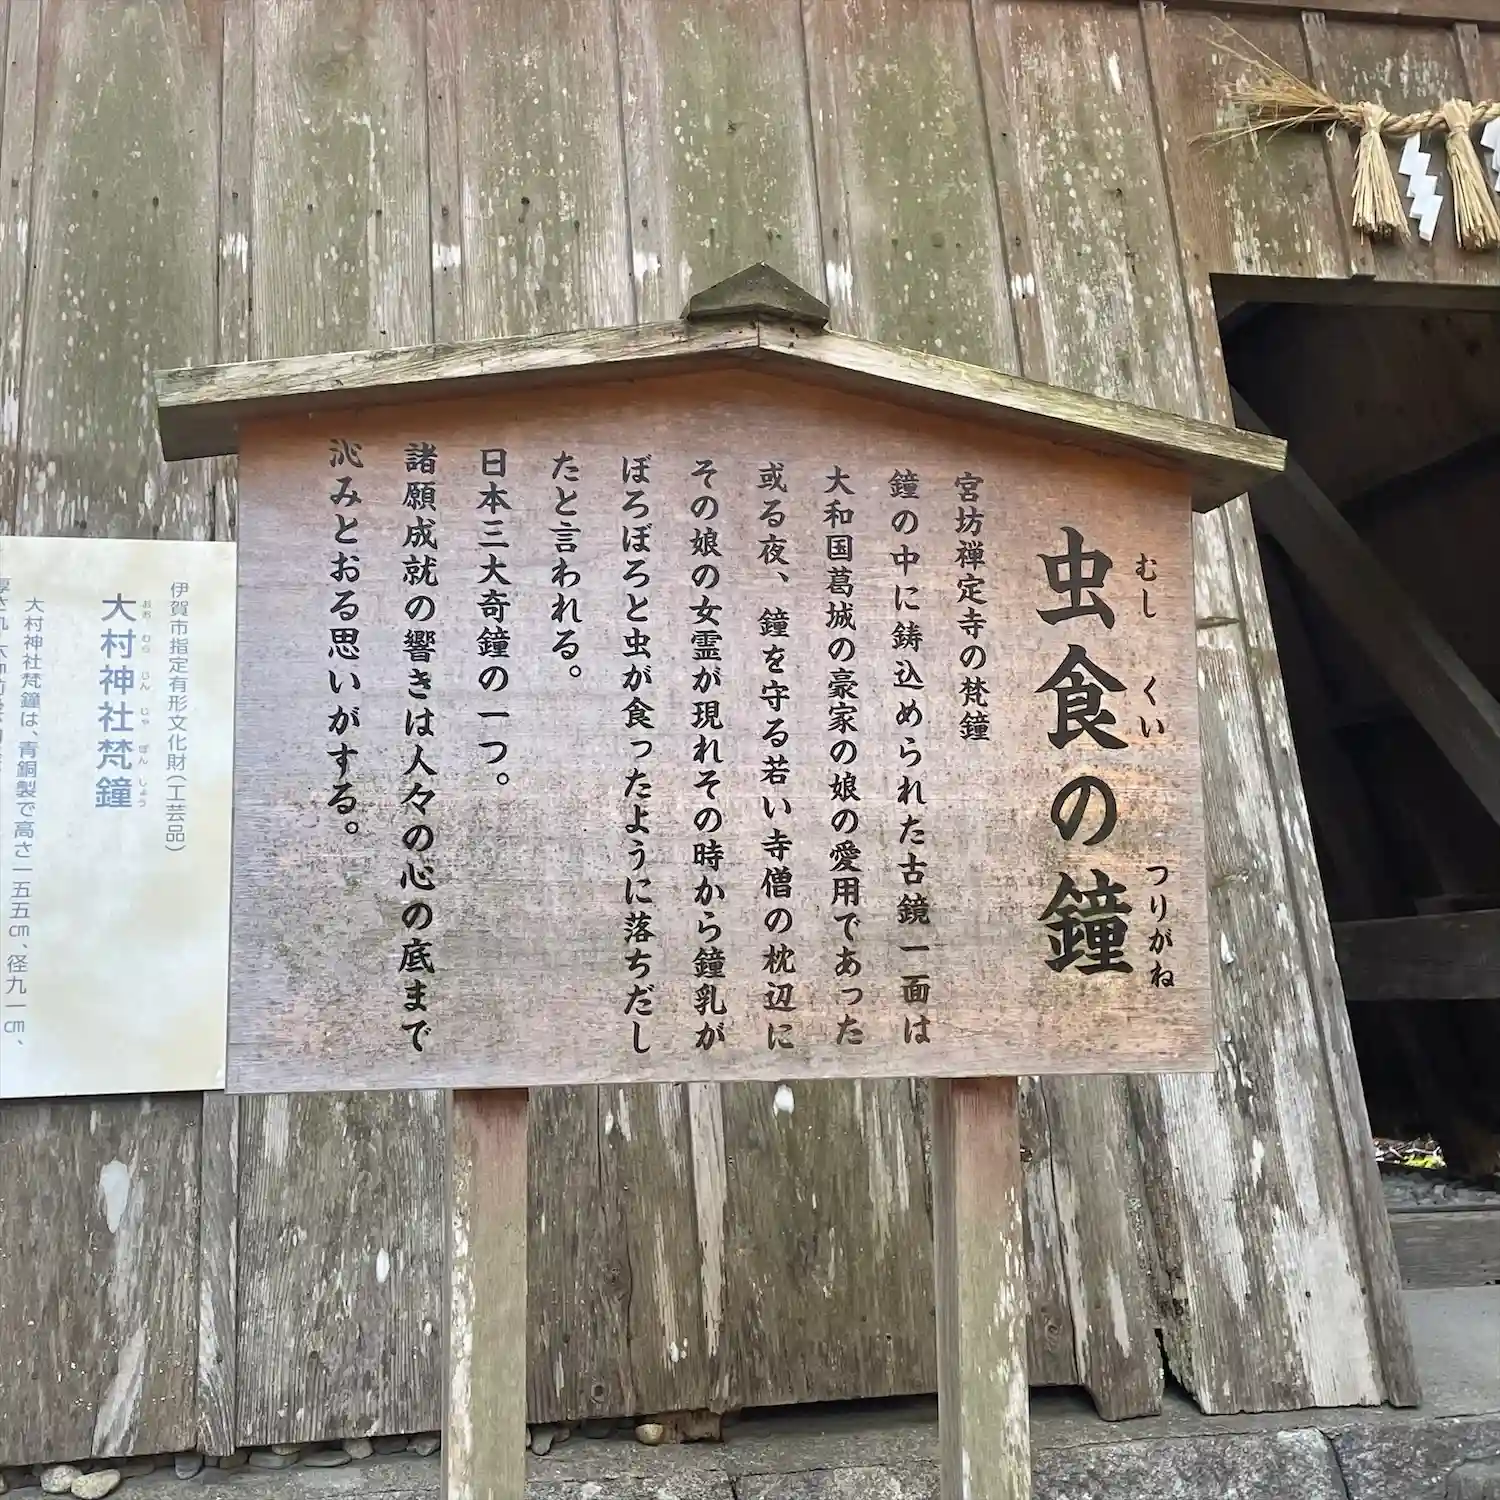 虫食の鐘
むし くい つりがね
宮坊禅定寺の梵鐘
鐘の中に鋳込められた古鏡一面は
大和国葛城の豪家の娘の愛用であった
或る夜、鐘を守る若い寺僧の枕辺に
その娘の女霊が現れその時から鐘乳が
ぼろぼろと虫が食ったように落ちだし
たと言われる。
日本三大奇鐘の一つ。
諸願成就の響きは人々の心の底まで
沁みとおる思いがする。
伊賀市指定有形文化財(工芸品)
大村神社梵鐘
おお むら じん じゃ ぼん しょう
大村神社梵鐘は、青銅製で高さ一五五㎝、径九一㎝、